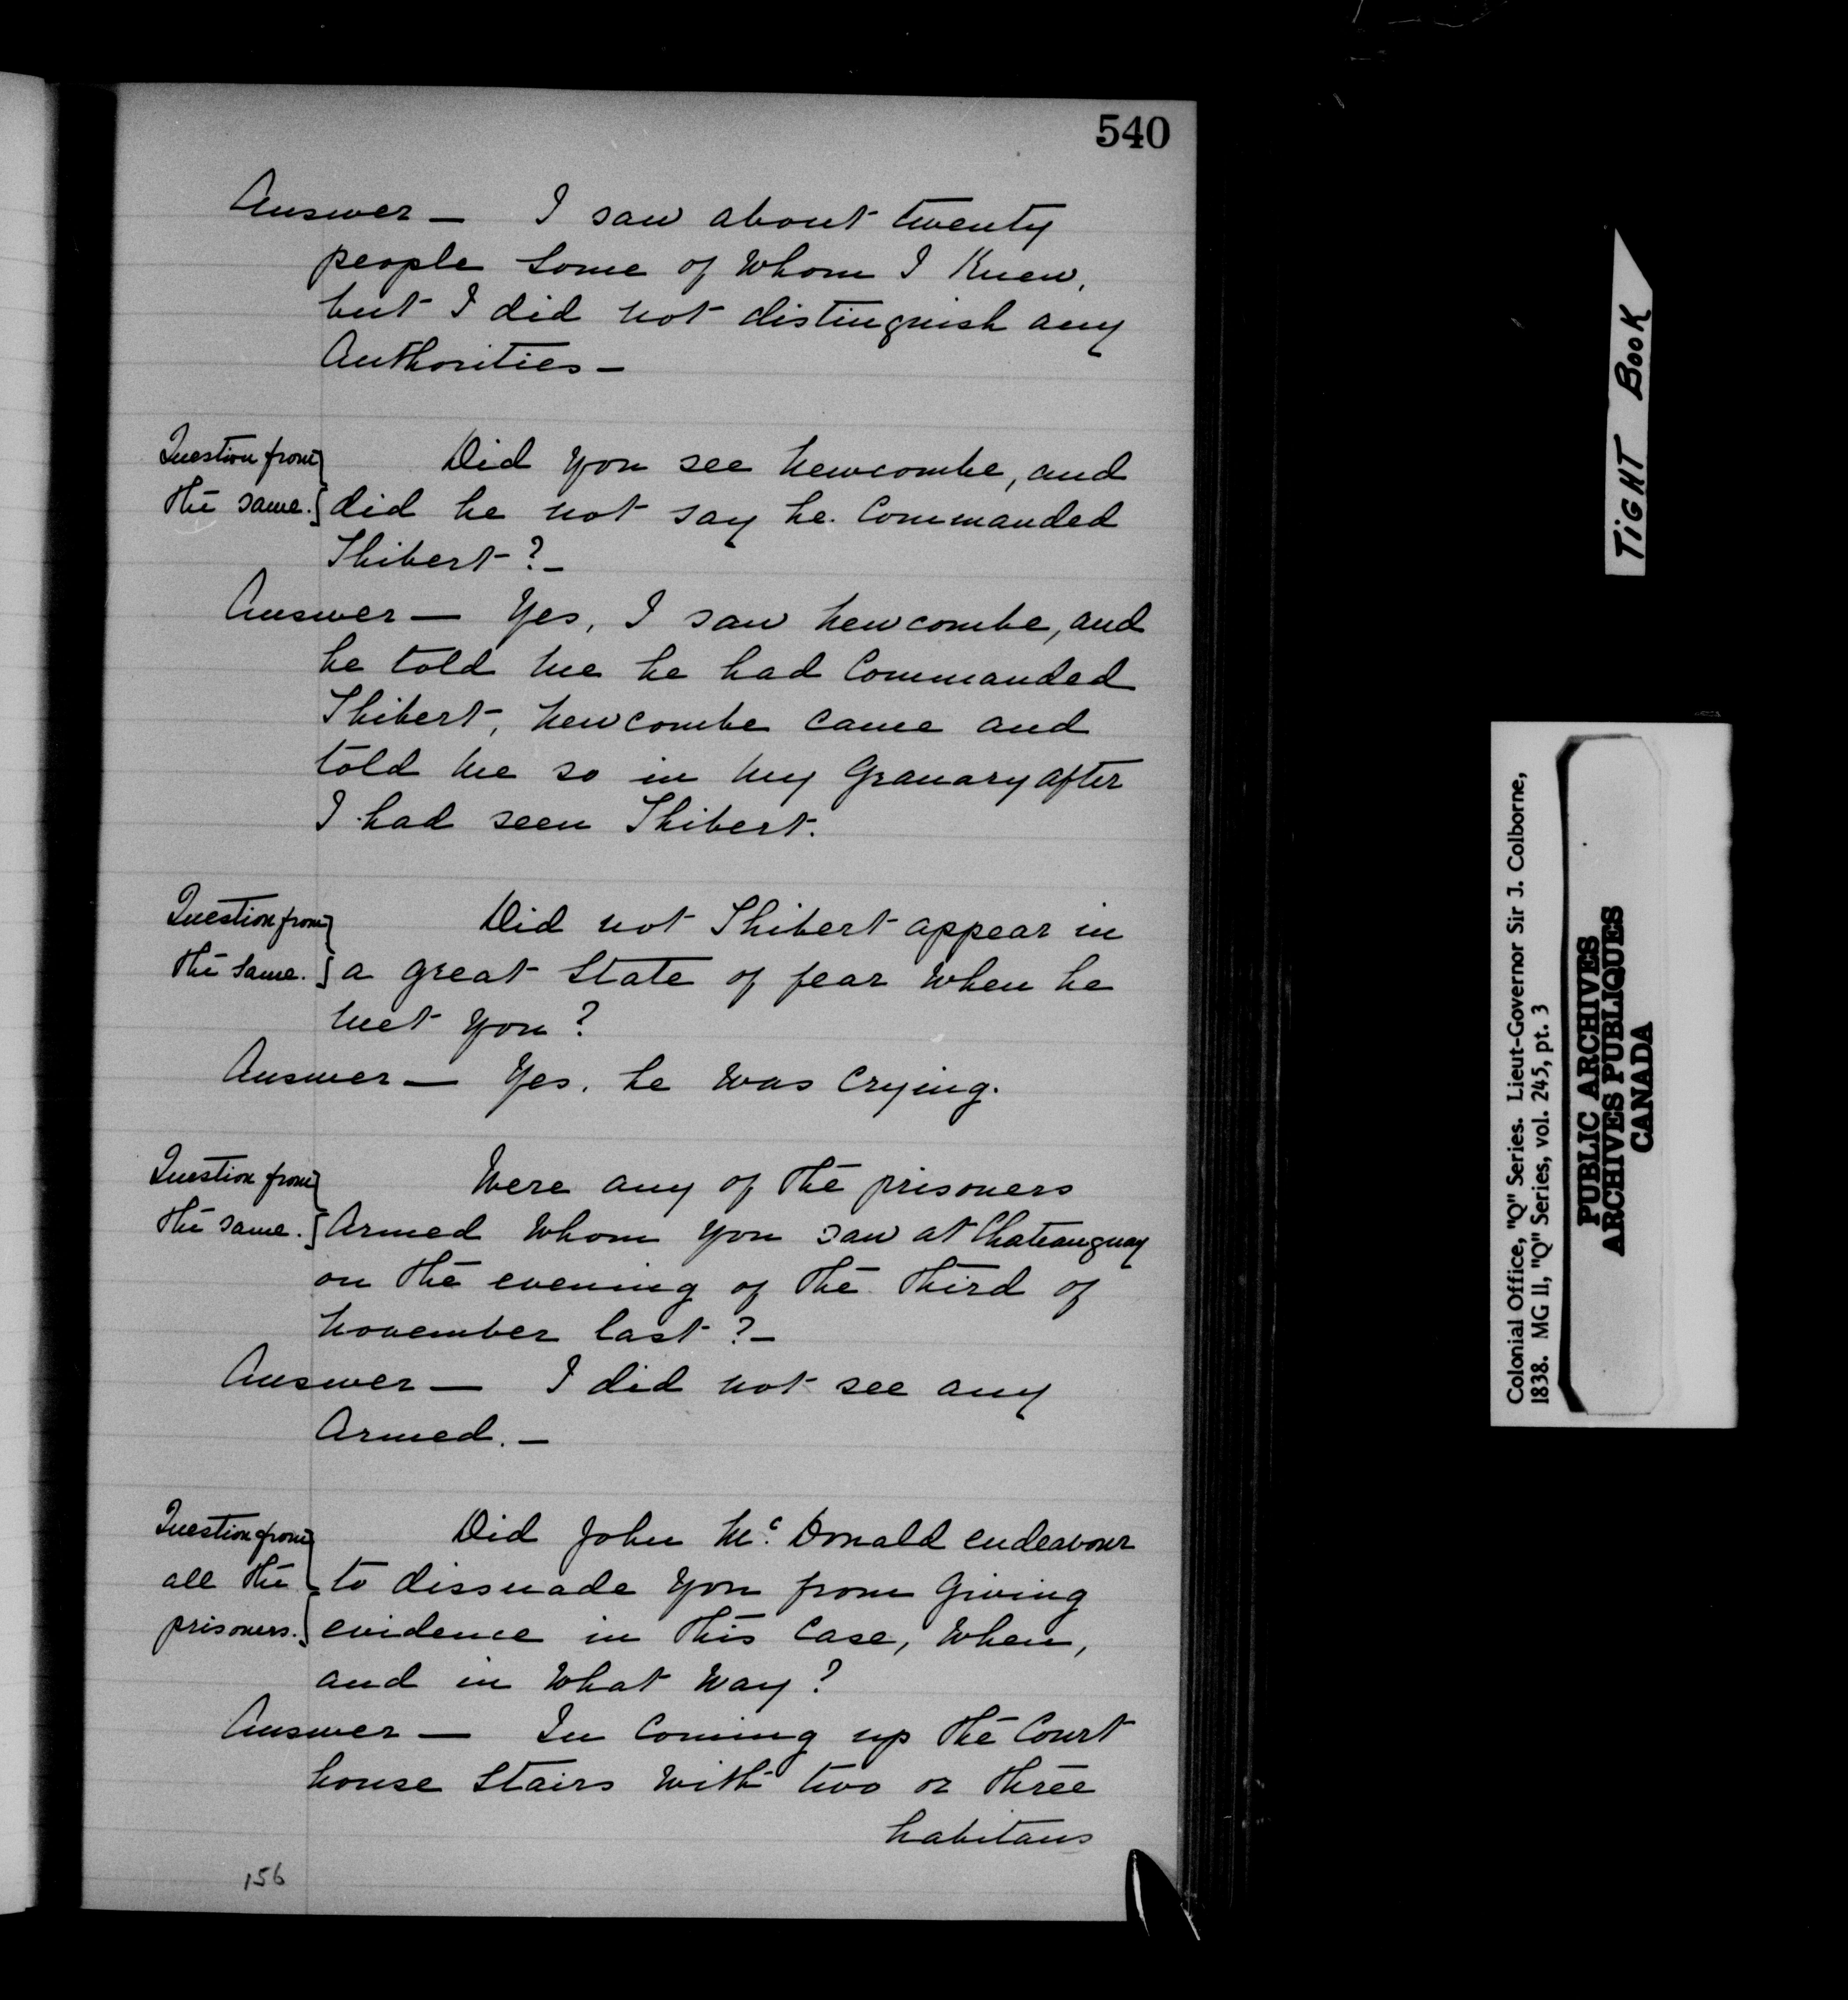 540
Answer — I saw about twenty
people some of whom I Knew,
but I did not distinguish any
Authorities —
Question from
the same. } Did you see Newcombe, and
did he not say he Commanded
Thibert? —
Answer — Yes, I saw Newcombe, and
he told me he had Commanded
Thibert, Newcombe came and
told me so in my Granary after
I had seen Thibert.
Question from
the same. } Did not Thibert appear in
a great State of fear when he
met you?
Answer — Yes, he was Crying.
Question from
the same. } Were any of the prisoners
Armed whom you saw at Chateauguay
on the evening of the third of
November last? —
Answer — I did not see any
Armed. —
Question from
all the
prisoners. } Did John Mc. Donald endeavour
to dissuade you from giving
evidence in this Case, when,
and in what way?
Answer — In Coming up the Court
house Stairs with two or three
habitans
156
TIGHT BOOK
Colonial Office, "Q" Series. Lieut-Governor Sir J. Colborne,
1838. MG 11, "Q" Series, vol. 245, pt. 3
PUBLIC ARCHIVES
ARCHIVES PUBLIQUES
CANADA